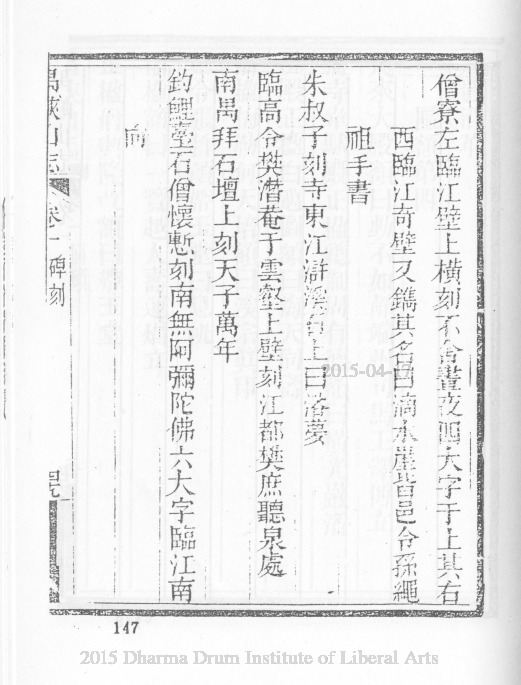 僧寮左臨江壁上橫刻不舍晝夜四大字于上其右
西臨江奇壁又鐫其名曰滴水崖皆邑令孫繩
祖手書
朱叔子刻寺東江滸溪台上曰落夢
臨高令樊潛菴于雲壑上壁刻江都樊庶聽泉處
南禺拜石壇上刻天子萬年
釣鯉臺石僧懷慙刻南無阿彌陀佛六大字臨江南
向
禺峽山志
卷一 碑刻
四九
147
2015-04-
2015 Dharma Drum Institute of Liberal Arts